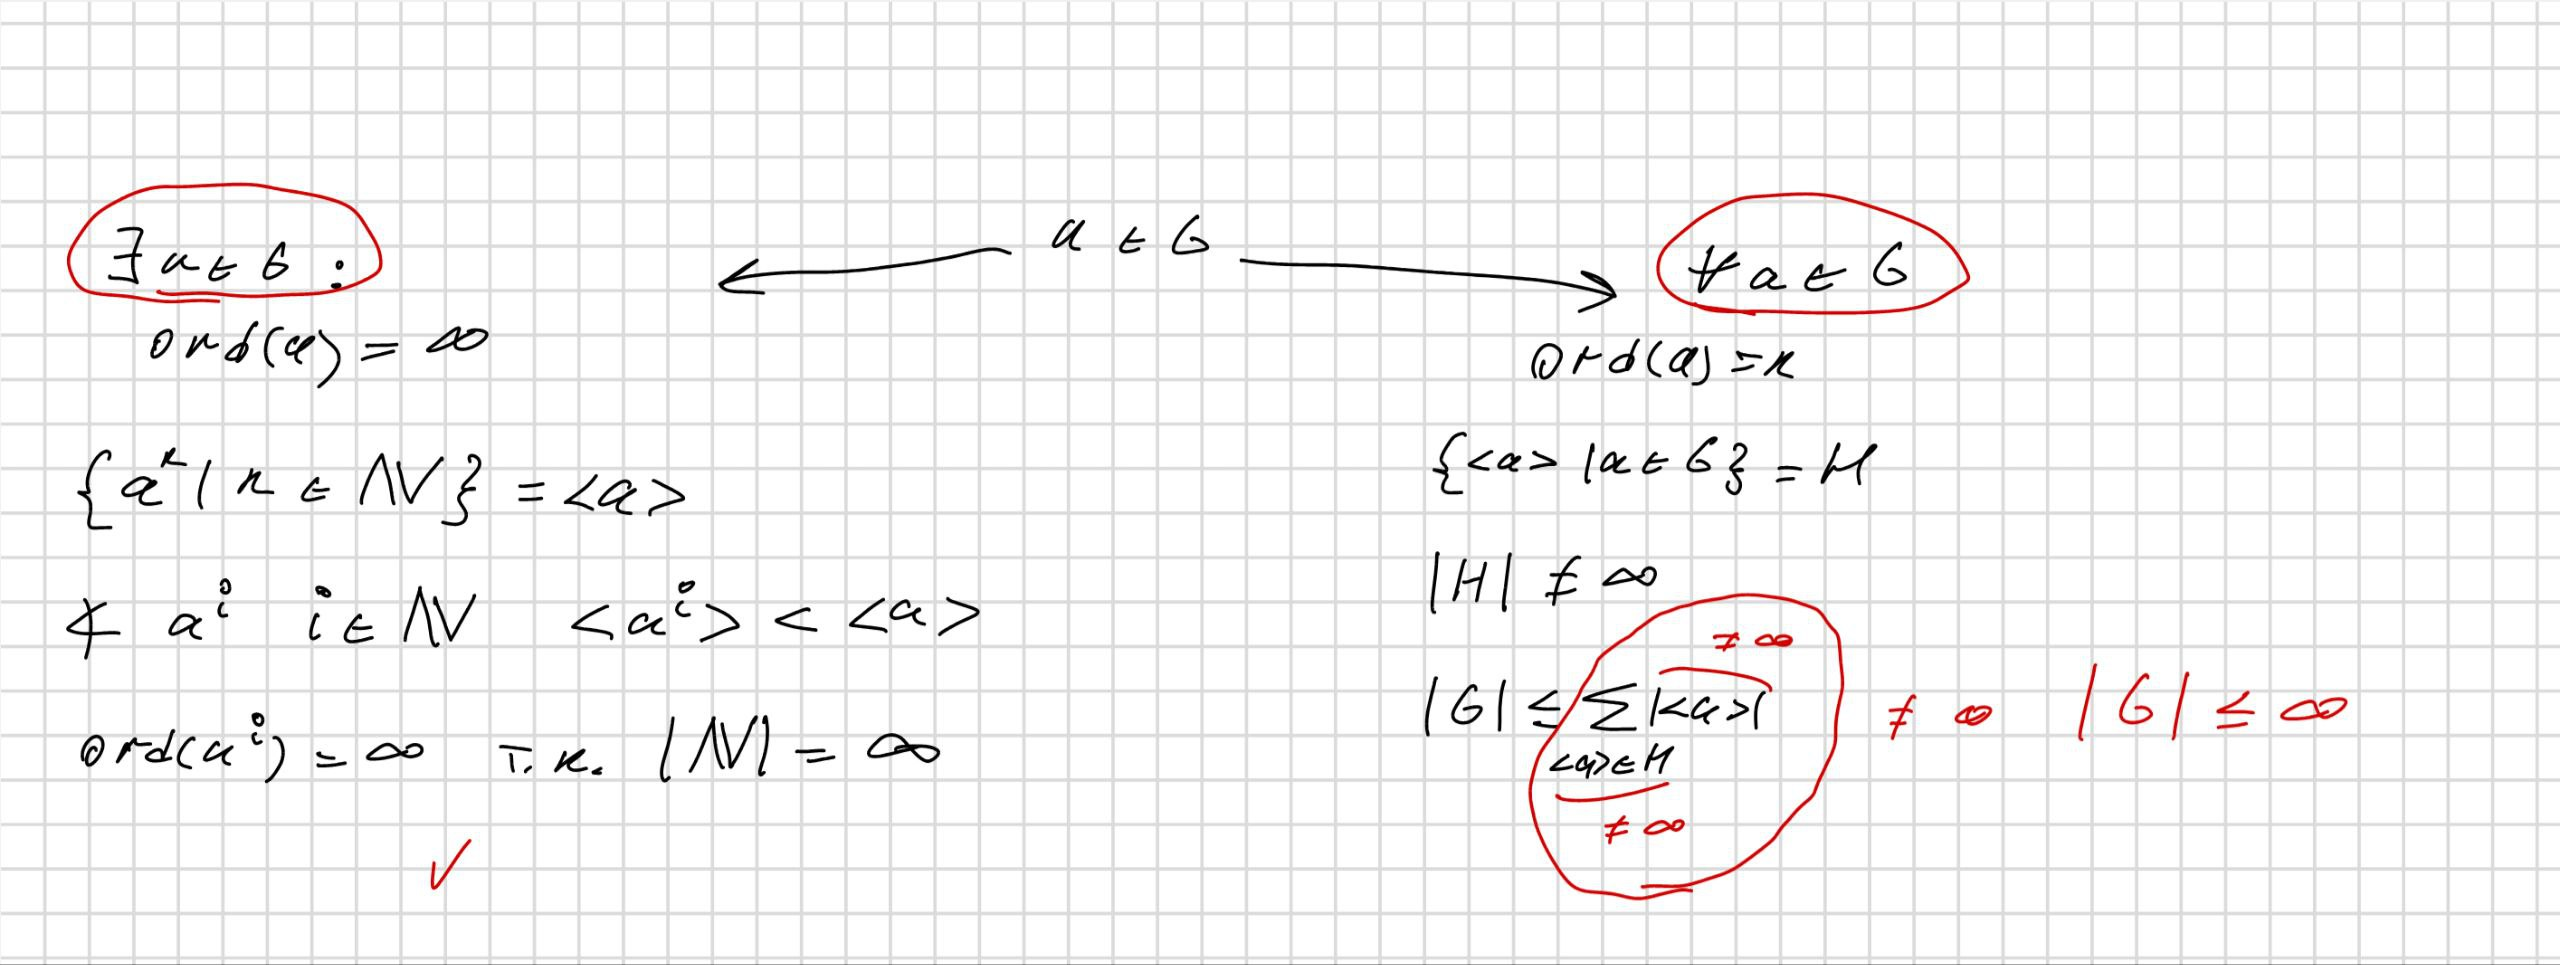 a ∈ G
∃ a ∈ G :
ord(a) = ∞
{aⁿ | n ∈ ℕ} = <a>
∢ aⁱ i ∈ ℕ <aⁱ> < <a>
ord(aⁱ) = ∞ т.к. |ℕ| = ∞
∀ a ∈ G
ord(a) = n
{<a> | a ∈ G} = H
|H| ≠ ∞
≠ ∞
|G| ≤ ∑ |<a>| ≠ ∞ |G| ≤ ∞
<a> ∈ H
≠ ∞